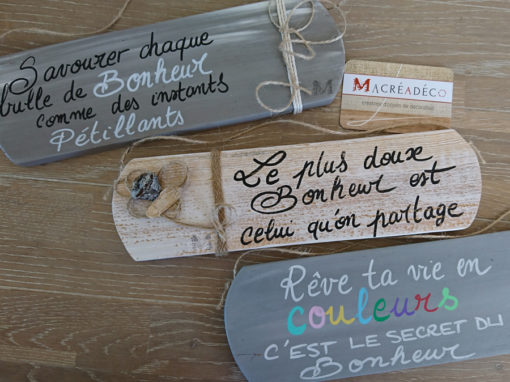 Savourer chaque
bulle de Bonheur
comme des instants
Pétillants
MACRÉADÉCO
créatrice d'objets de décoration
Le plus douxe
Bonheur est
celui qu'on partage
Rêve ta vie en
couleurs
C'EST LE SECRET DU
Bonheur